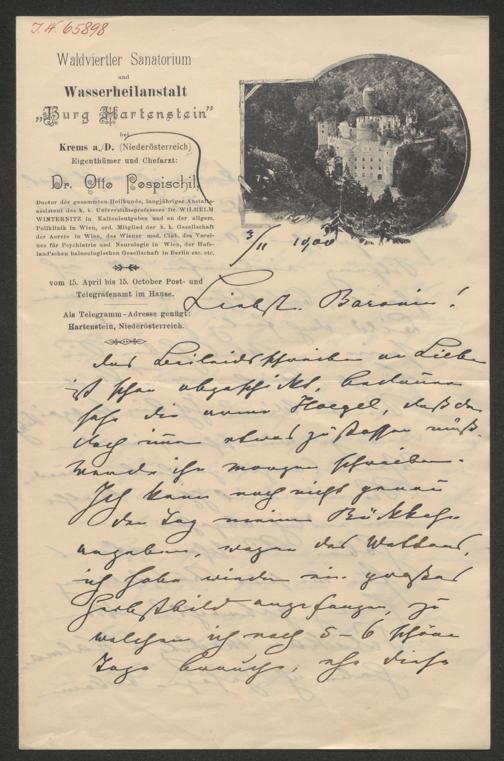 I.N. 65898
Waldviertler Sanatorium
und
Wasserheilanstalt
„Burg Hartenstein"
bei
Krems a./D. (Niederösterreich)
Eigenthümer und Chefarzt:
Dr. Otto Pospischil,
Doctor der gesammten Heilkunde, langjähriger Anstalts-
assistent des k. k. Universitätsprofessors Dr. WILHELM
WINTERNITZ in Kaltenleutgeben und an der allgem.
Poliklinik in Wien, ord. Mitglied der k. k. Gesellschaft
der Aerzte in Wien, des Wiener med. Club, des Verei-
nes für Psychiatrie und Neurologie in Wien, der Hufe-
land'schen balneologischen Gesellschaft in Berlin etc. etc.
vom 15. April bis 15. October Post- und
Telegrafenamt im Hause.
Als Telegramm-Adresse genügt:
Hartenstein, Niederösterreich.
3/11 1900
Liebste Baronin!
das Beileidsschreiben an Liebe
ist schon abgeschickt, bedaure
sehr die arme Haegel, daß den
doch immer etwas zustoßen muß.
werde ihr morgen schreiben.
Ich kann noch nicht genau
den Tag meiner Rückkehr
angeben, wegen des Wetters,
ich habe wieder ein großes
Herbstbild angefangen, zu
welchem ich noch 5–6 schöne
Tage brauche, ehe diese